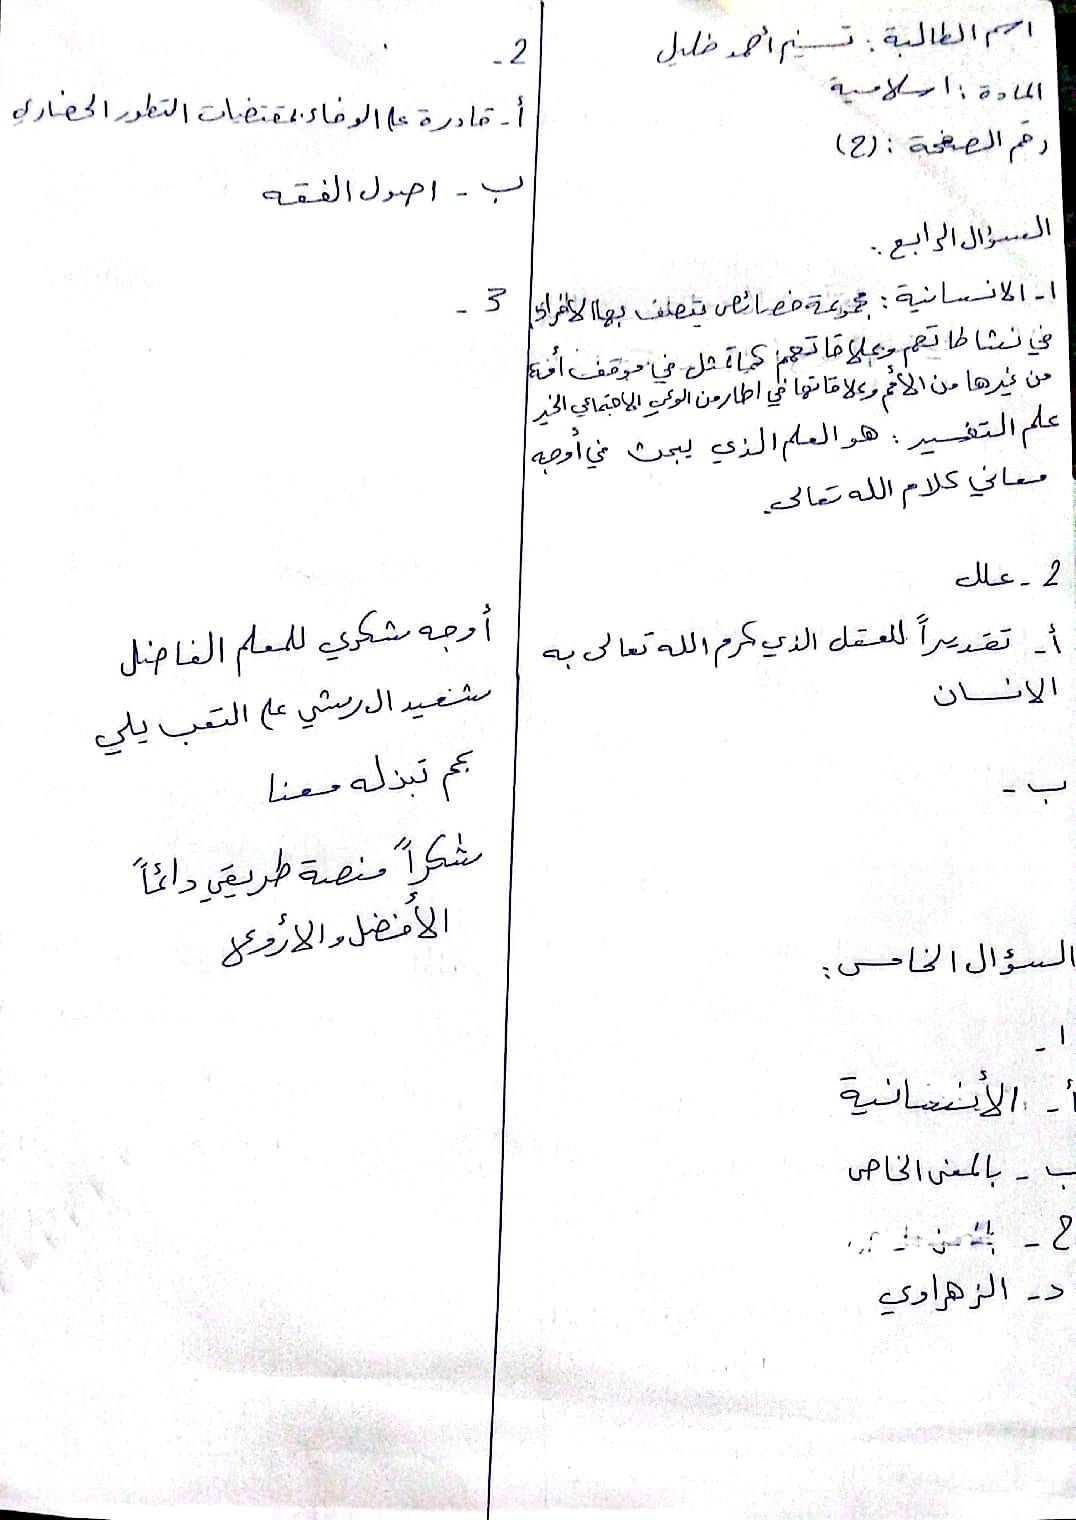 اسم الطالبة : تسنيم أحمد خليل
المادة : اسلامية
رقم الصفحة : (ح)
السؤال الرابع :
1- الانسانية : مجموعة خصائص يتصف بها الأفراد
في نشاطاتهم وعلاقاتهم كما تمثل في موقف أمة
من غيرها من الأمم وعلاقاتها في اطار من الوعي الاجتماعي الخير
علم التفسير : هو العلم الذي يبحث في أوجه
معاني كلام الله تعالى.
2- علل
أ- تقديراً للعقل الذي كرم الله تعالى به
الانسان
ب-
السؤال الخامس :
1-
أ- الأنسانية
ب- بالمعنى الخاص
ح-
د- الزهراوي
2-
أ- قادرة على الوفاء بمقتضيات التطور الحضاري
ب- اصول الفقه
3-
أوجه شكري للمعلم الفاضل
الريشي على التعب يلي
عم تبذله معنا
شكراً منصة طريقي دائماً
الأفضل والأروع